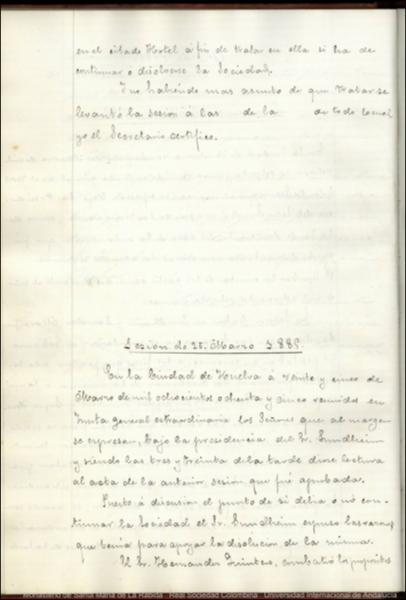 en el citado Hotel á fin de tratar en ella si ha de
continuar ó disolverse la Sociedad.
Y no habiendo mas asunto de que tratar se
levantó la sesion á las de la de todo lo cual
yo el Secretario certifico.
Sesión de 25 Marzo 1885.
En la Ciudad de Huelva á veinte y cinco de
Marzo de mil ochocientos ochenta y cinco reunidos en
Junta general extraordinaria los Señores que al margen
se expresan, bajo la presidencia del Sr. Sundheim
y siendo las tres y treinta de la tarde diose lectura
al acta de la anterior sesion que fué aprobada.
Puesto á discusion el punto de si debia ó nó con-
tinuar la Sociedad el Sr. Sundheim expuso las razones
que tenia para apoyar la disolucion de la misma.
El Sr. Hernandez Quintero, combatió los propositos
Monasterio de Santa María de La Rábida Real Sociedad Colombina Universidad Internacional de Andalucía